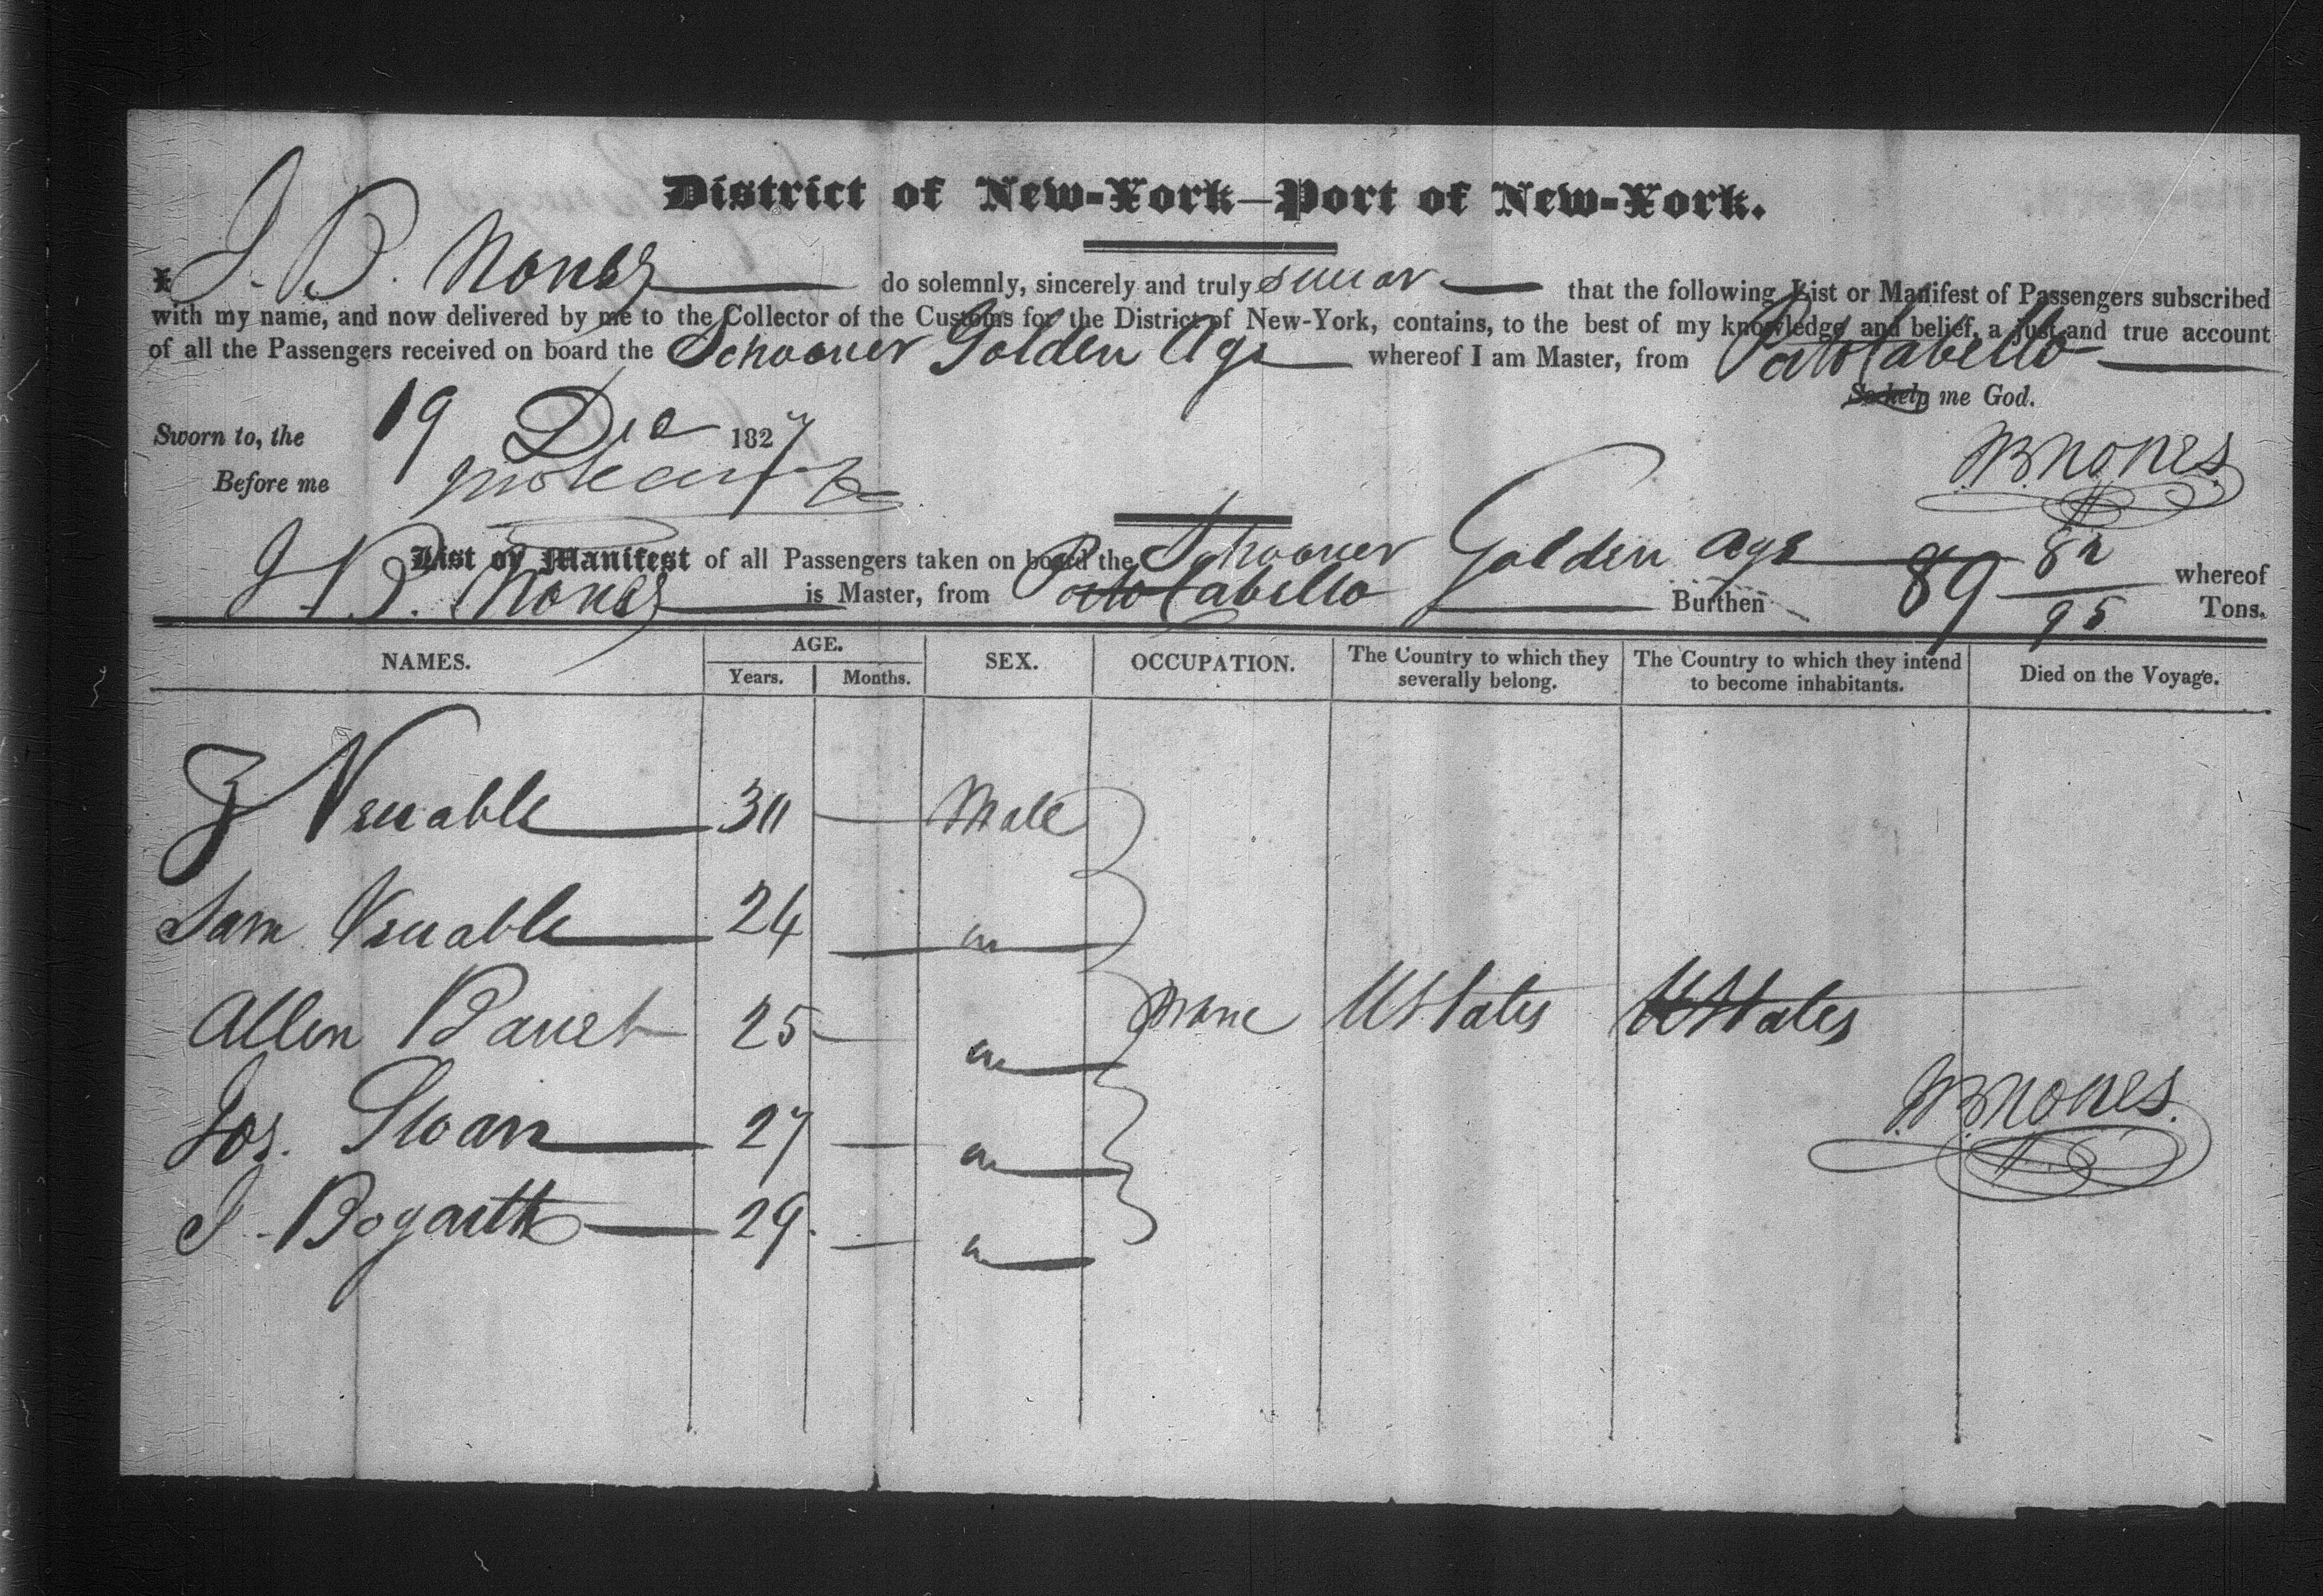 District of New-York—Port of New-York.
I J. B. Nones do solemnly, sincerely and truly swear that the following List or Manifest of Passengers subscribed
with my name, and now delivered by me to the Collector of the Customs for the District of New-York, contains, to the best of my knowledge and belief, a just and true account
of all the Passengers received on board the Schooner Golden Age whereof I am Master, from Porto Cabello
So help me God.
Sworn to, the 19 Dec 1827
J.B. Nones
Before me
List or Manifest of all Passengers taken on board the Schooner Golden Age whereof
J. B. Nones is Master, from Porto Cabello Burthen 89 82/95 Tons.
NAMES. AGE. SEX. OCCUPATION. The Country to which they severally belong. The Country to which they intend to become inhabitants. Died on the Voyage.
Years. Months.
Venable 30 Male
Sam Venable 24
Allen 25 None U States U States
Jos. Sloan 27
J.B. Nones.
J. Bogartt 29